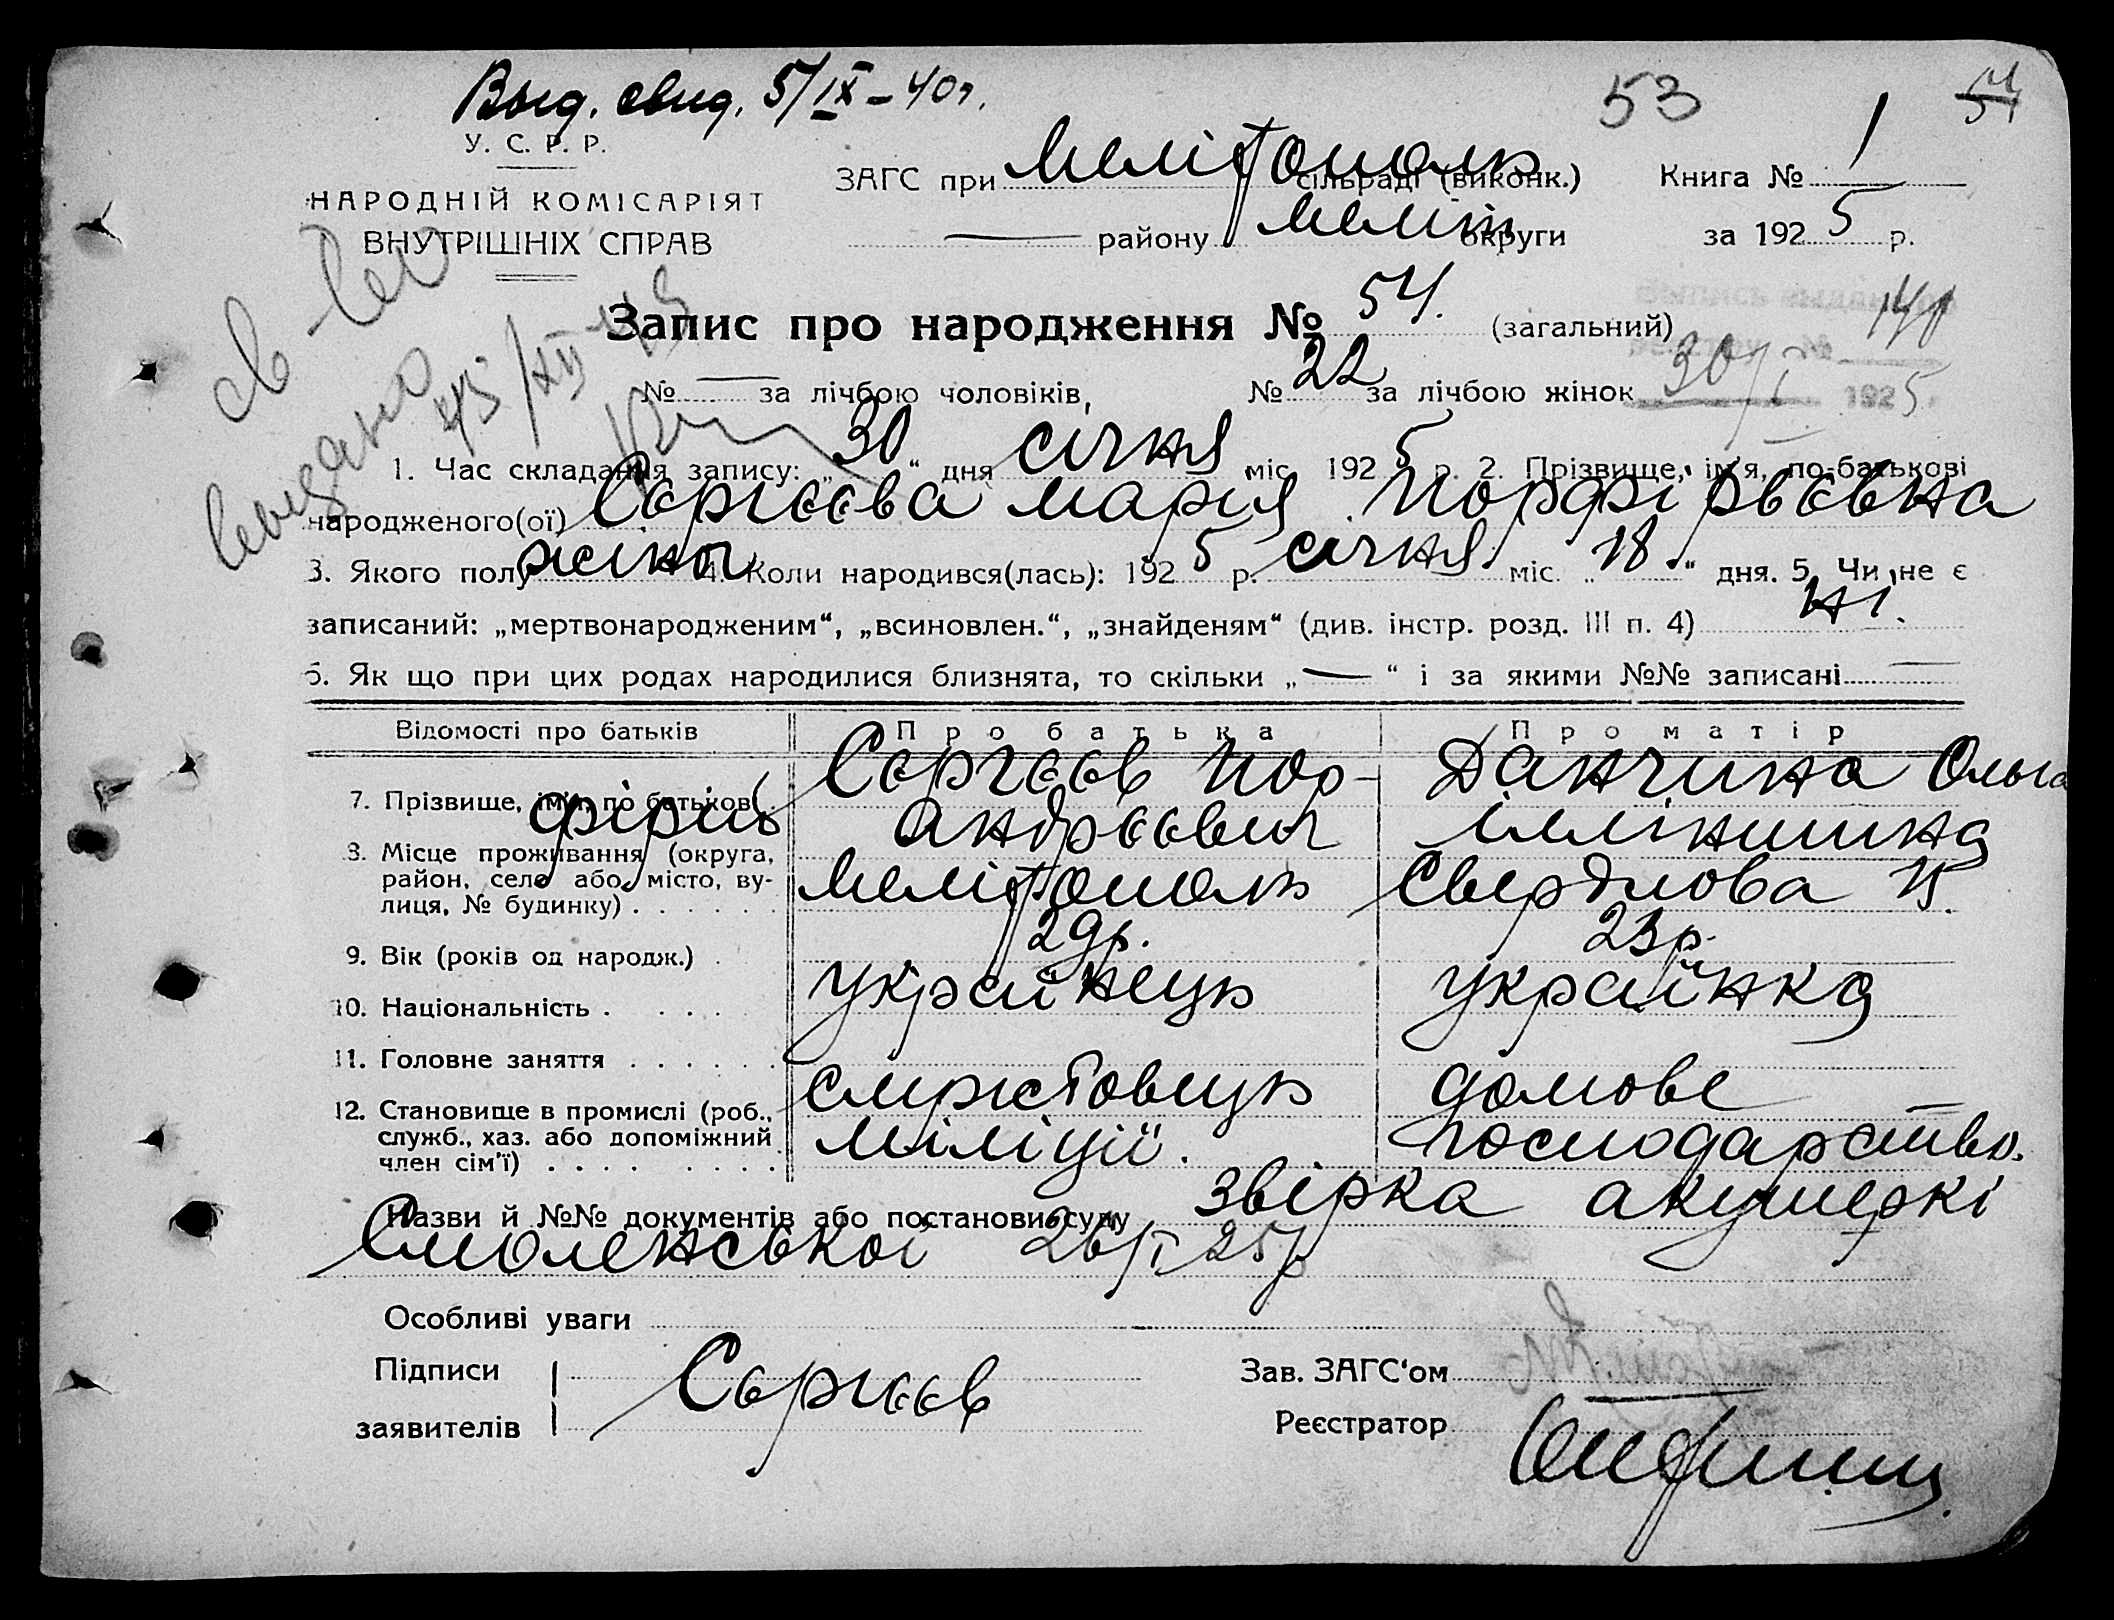 Выд. свид. 5/IX–40г.
53
54
У. С. Р. Р.
НАРОДНІЙ КОМІСАРІЯТ
ВНУТРІШНІХ СПРАВ
ЗАГС при Мелітополь сільраді (виконк.)
— району Меліт округи
Книга № 1
за 1925 р.
св-во
выдано
Запис про народження № 54. (загальний)
№ — за лічбою чоловіків, № 22 за лічбою жінок
140
30/I 1925
1. Час складання запису: „30“ дня січня міс. 1925 р. 2. Прізвище, ім'я, по-батькові
народженого(ої) Сєргєєва Марія Порфірьєвна
3. Якого полу жіноч 4. Коли народився(лась): 1925 р. січня міс. „18“ дня. 5. Чи не є
записаний: „мертвонародженим“, „всиновлен.“, „знайденям“ (див. інстр. розд. III п. 4) ні.
6. Як що при цих родах народилися близнята, то скільки „—“ і за якими №№ записані —
Відомості про батьків Про батька Про матір
7. Прізвище, ім'я, по батькові Сєргєєв Пор-фірій Андрєєвич Данчина Ольга Іллінишна
8. Місце проживання (округа, Мелітополь Свердлова
район, село або місто, ву-
лиця, № будинку)
9. Вік (років од народж.) 29р. 23р.
10. Національність українець українка
11. Головне заняття
12. Становище в промислі (роб., домове
служб., хаз. або допоміжний міліції. господарство.
член сім'ї)
Назви й №№ документів або постанови суду звірка акушеркі
Смоленської 26/I 25р
Особливі уваги
Підписи
заявителів
Сєргєєв
Зав. ЗАГС'ом
Реєстратор